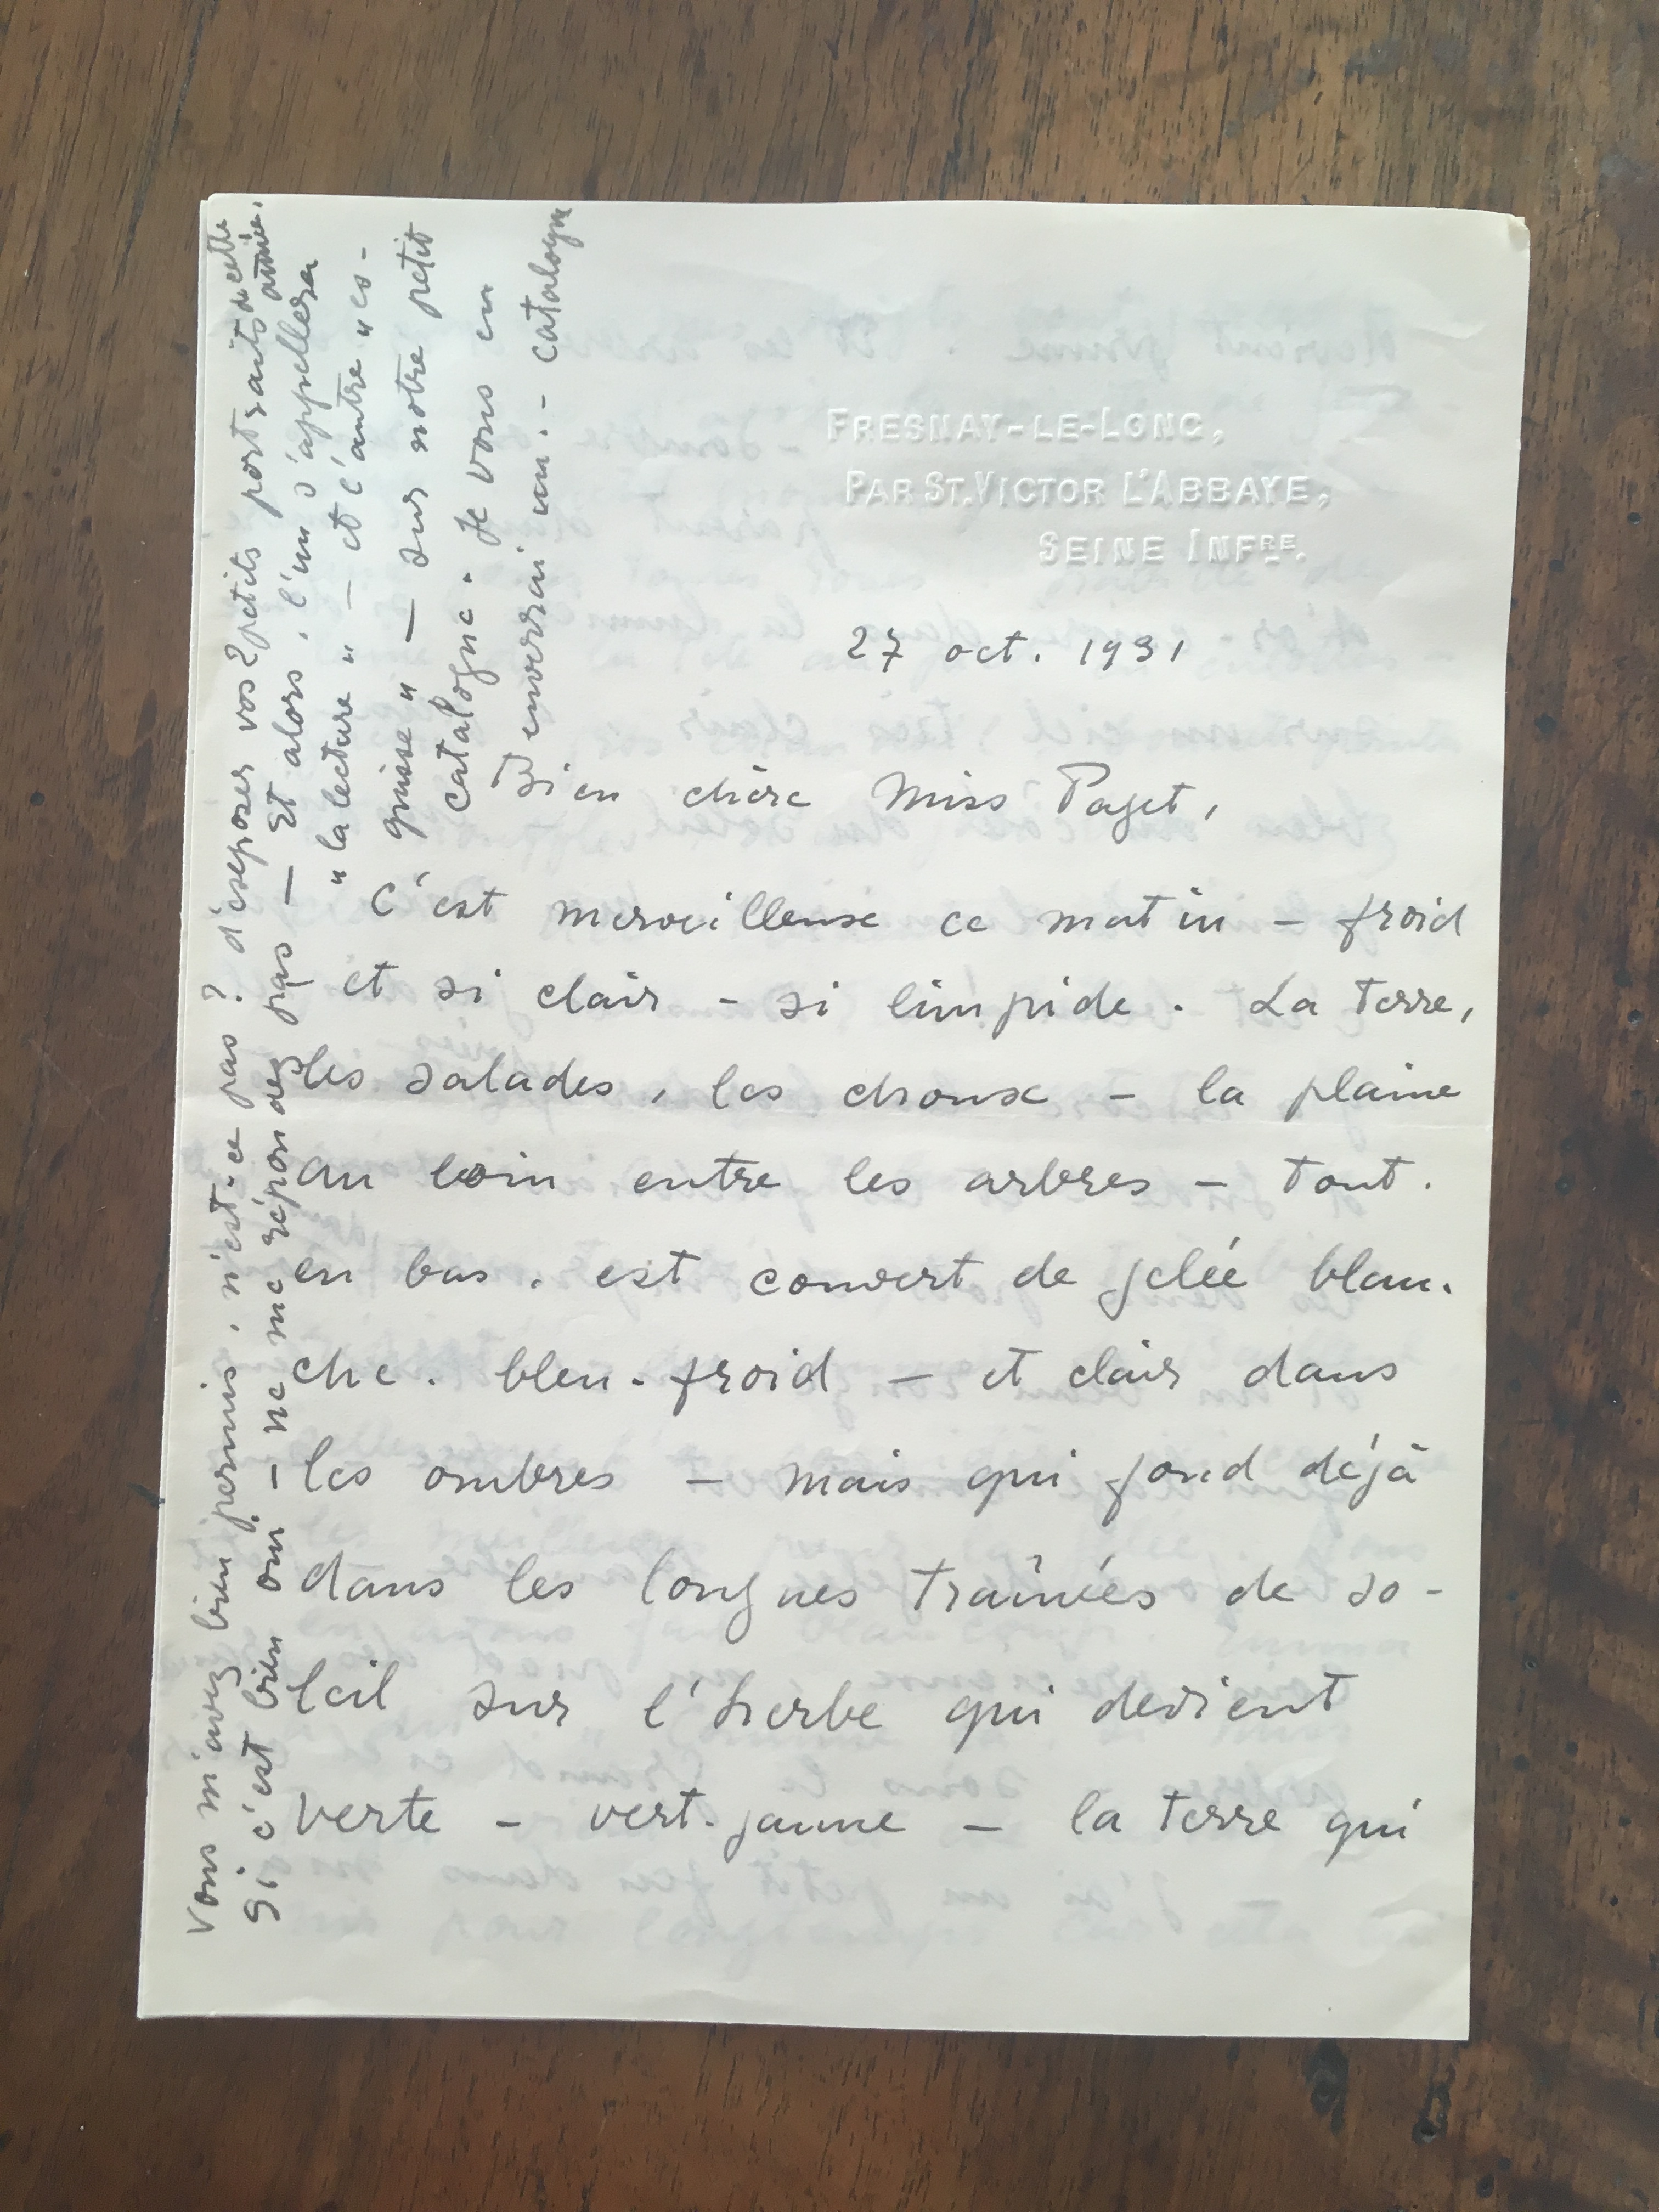 FRESNAY-LE-LONG,
PAR ST. VICTOR L'ABBAYE,
SEINE INFRE.
27 oct. 1931
Bien chère Miss Paget,
C'est merveilleux ce matin – froid
et si clair – si limpide. La terre,
les salades, les choux – la plaine
au loin entre les arbres – tout.
en bas. est couvert de gelée blan.
che. bleu.froid – et clair dans
les ombres – mais qui fond déjà
dans les longues traînées de so-
leil sur l'herbe qui devient
verte – vert.jaune – la terre qui
Vous m'avez bien permis. n'est-ce pas? d'exposer vos 2 petits portraits de cette
année.
Si c'est bien oui – ne me répondez pas – Et alors, l'un s'appellera
"la lecture" – et l'autre "es-
quisse" – sur notre petit
catalogue. Je vous en
enverrai un. – catalogue